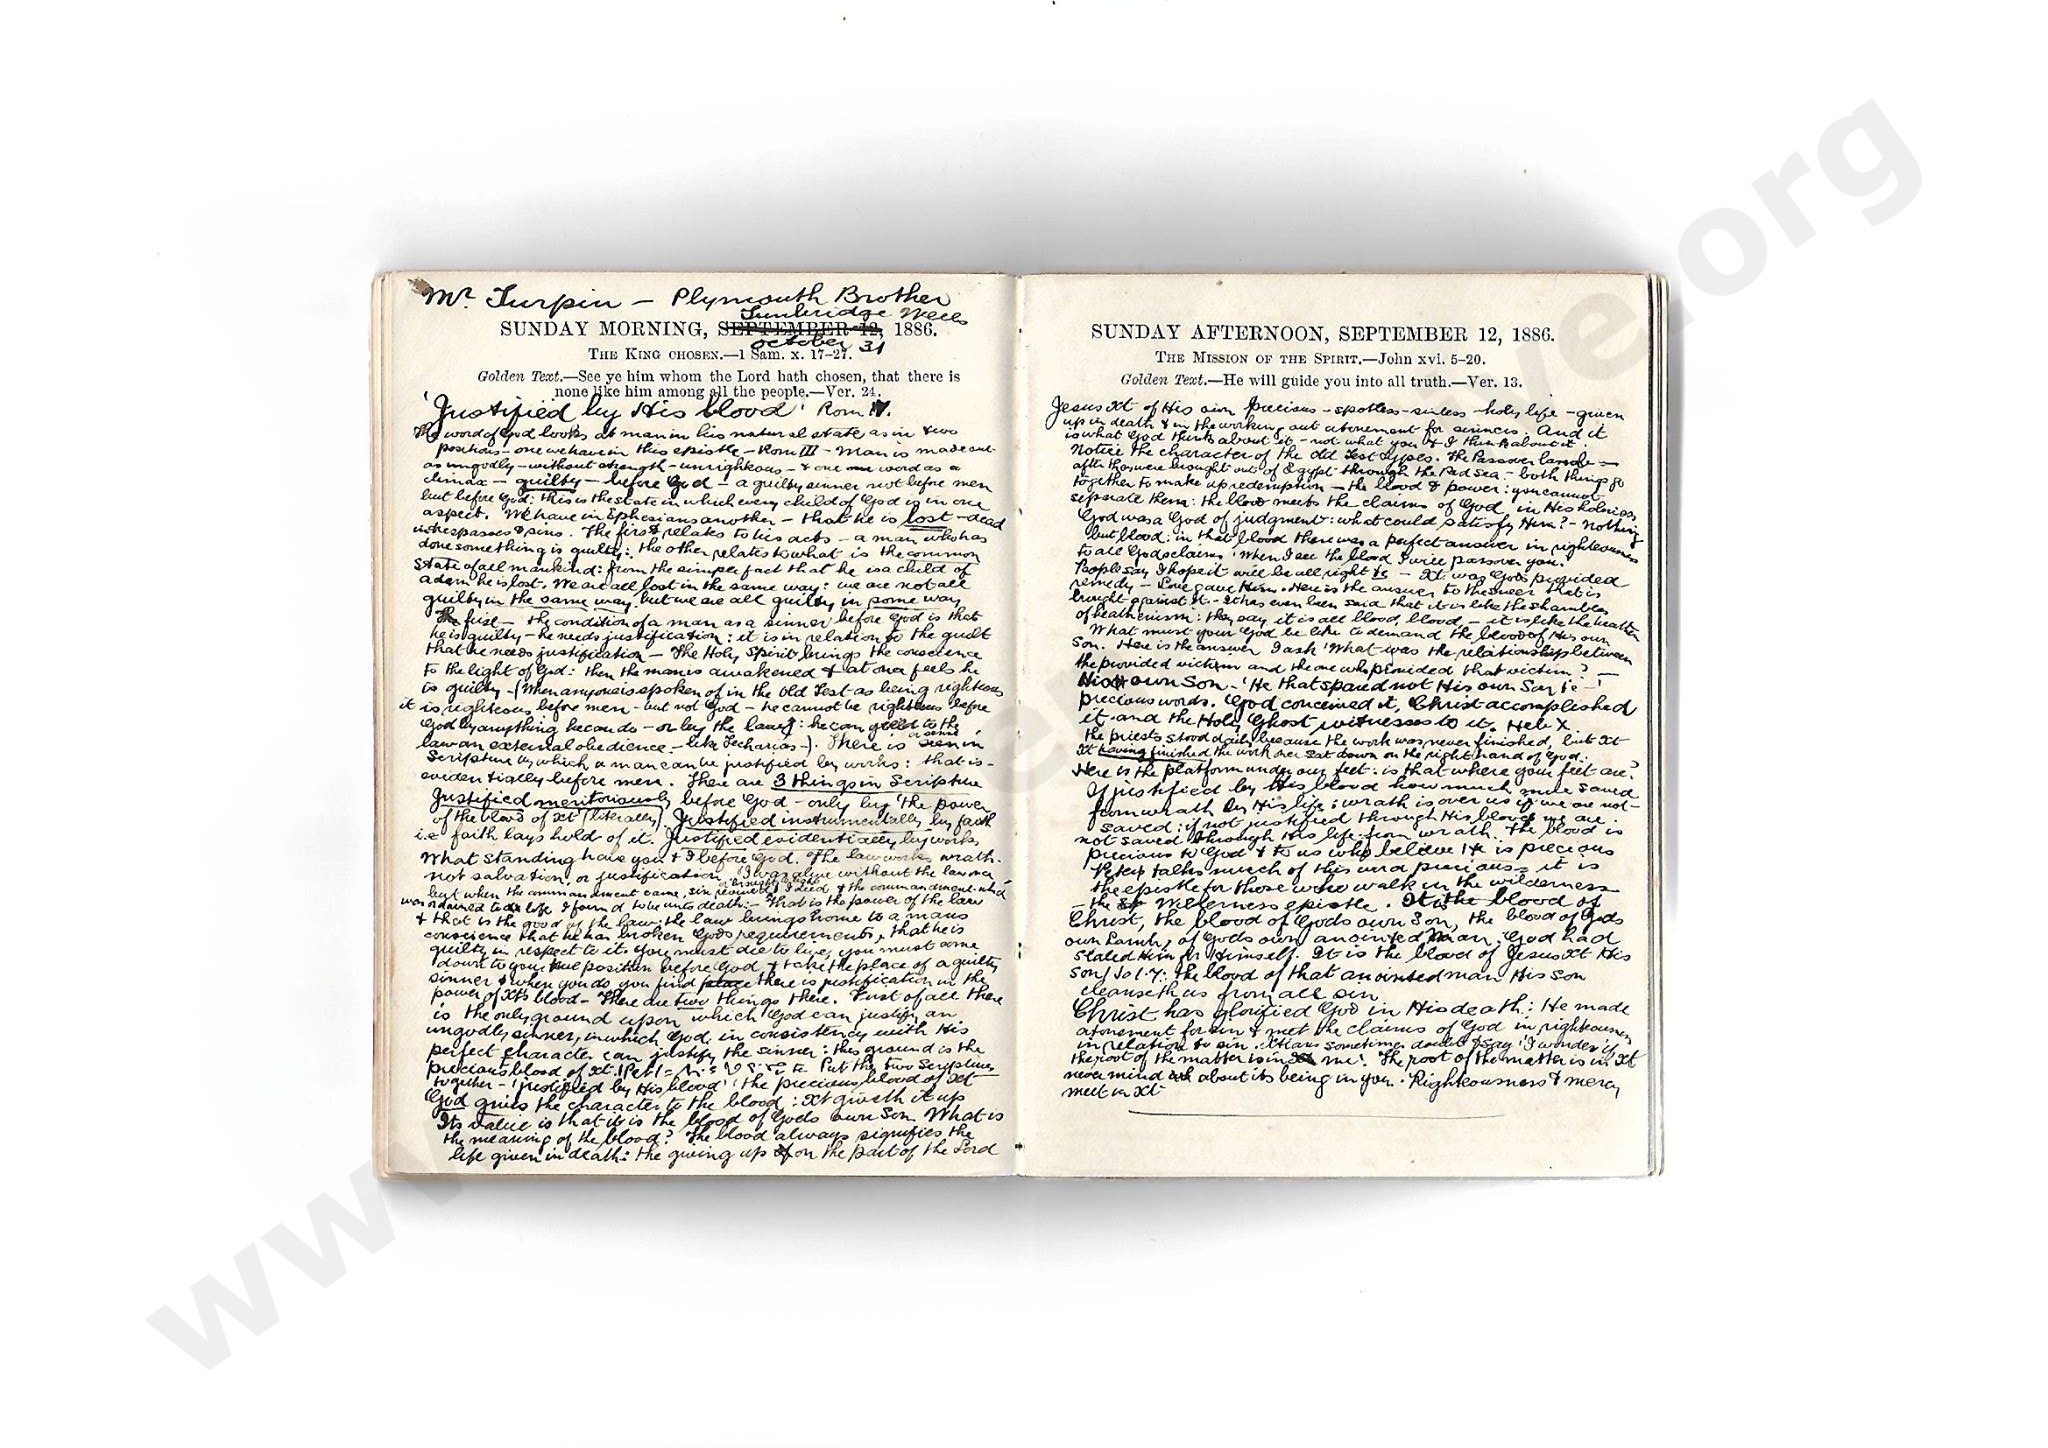 Mr Turpin — Plymouth Brother
Tunbridge Wells
SUNDAY MORNING, SEPTEMBER 12, 1886.
October 31
THE KING CHOSEN.—1 Sam. x. 17-27.
Golden Text.—See ye him whom the Lord hath chosen, that there is
none like him among all the people.—Ver. 24.
'Justified by His blood' Rom V.
The word of God looks at man in his natural state as in two
positions - one we have in this epistle - Rom III - Man is made out
as ungodly - without strength - unrighteous - & one word as a
climax - guilty - before God - a guilty sinner not before men
but before God: this is the state in which every child of God is in one
aspect. We have in Ephesians another - that he is lost - dead
in trespasses & sins. The first relates to his acts - a man who has
done something is guilty: the other relates to what is the common
state of all mankind: from the simple fact that he is a child of
adam he is lost. We are all lost in the same way: we are not all
guilty in the same way but we are all guilty in some way
The first - the condition of a man as a sinner before God is that
he is guilty - he needs justification: it is in relation to the guilt
that he needs justification - The Holy Spirit brings the conscience
to the light of God: then the man is awakened & at once feels he
is guilty - (When anyone is spoken of in the Old Test as being righteous
it is righteous before men - but not God - he cannot be righteous before
God by anything he can do - or by the law): he can yield to the
law an external obedience - like Zecharias -). There is a sense in
Scripture by which a man can be justified by works: that is -
evidentially before men. There are 3 things in Scripture
Justified meritoriously before God - only by 'the power
of the blood of Xt (literally) Justified instrumentally by faith
i.e faith lays hold of it. Justified evidentially by works
What standing have you & I before God. The law works wrath -
not salvation, or justification. I was alive without the law once
or brought to light
but when the commandment came, sin revived & I died & the commandment which
was ordained to life I found to be unto death: - That is the power of the law
& that is the good of the law; the law brings home to a mans
conscience that he has broken Gods requirements, that he is
guilty in respect to it. you must die to live, you must come
down to your real position before God & take the place of a guilty
sinner & when you do you find place there is justification in the
power of Xts blood - There are two things there. First of all there
is the only ground upon which God can justify an
ungodly sinner, in which God, in consistency with His
perfect character can justify the sinner: this ground is the
precious blood of Xt. 1 Pet 1 Put the two Scriptures
together - 'justified by His blood' 'the precious blood of Xt
God gives the character to the blood: Xt giveth it up
Its value is that it is the blood of Gods own Son. What is
the meaning of the blood? The blood always signifies the
life given in death: the giving up on the part of the Lord
SUNDAY AFTERNOON, SEPTEMBER 12, 1886.
THE MISSION OF THE SPIRIT.—John xvi. 5-20.
Golden Text.—He will guide you into all truth.—Ver. 13.
Jesus Xt of His own precious - spotless - sinless - holy life - given
up in death & in the working out atonement for sinners. And it
is what God thinks about it - not what you & I think about it.
Notice the character of the Old Test types. The Passover lamb -
after they were brought out of Egypt through the Red Sea - both things go
together to make up redemption - the blood & power: you cannot
separate them: the blood meets the claims of God in His holiness
God was a God of judgment: what could satisfy Him? - Nothing
but blood: in that blood there was a perfect answer in righteousness
to all Gods claims 'When I see the blood I will pass over you.'
People say I hope it will be all right &c - Xt was Gods provided
remedy - Love gave Him. Here is the answer to the sneer that is
brought against it - It has even been said that it is like the shambles
of heathenism: they say it is all blood, blood, - it is like the heathen
What must your God be like to demand the blood of His own
Son. Here is the answer I ask 'What was the relationship between
the provided victim and the one who provided that victim? -
His own Son - 'He that spared not His own Son &c - !
precious words. God conceived it, Christ accomplished
it - and the Holy Ghost witnesses to it. Heb X
the priests stood daily because the work was never finished, but Xt
Xt having finished the work once sat down on the right hand of God.
Here is the platform under our feet: is that where your feet are?
If justified by His blood how much more saved
from wrath by His life: wrath is over us if we are not
saved; if not justified through His blood we are
not saved through His life from wrath. The blood is
precious to God & to us who believe He is precious
Peter talks much of this word precious - it is
the epistle for those who walk in the wilderness
- the Wilderness epistle. It is the blood of
Christ, the blood of Gods own Son, the blood of Gods
own Lamb, of Gods own anointed Man; God had
sealed Him for Himself. It is the blood of Jesus Xt His
son 1 Jo 1.7: the blood of that anointed man His son
cleanseth us from all sin
Christ has glorified God in His death: He made
atonement for sin & met the claims of God in righteousness
in relation to sin. Xtians sometimes doubt & say 'I wonder if
the root of the matter is in me'. The root of the matter is in Xt
never mind about its being in you. Righteousness & mercy
meet in Xt